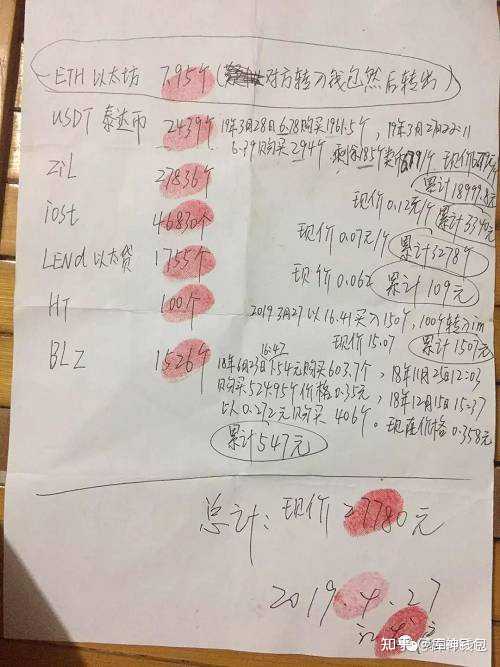 ETH 以太坊 7.95个 (对方转入钱包然后转出)
USDT 泰达币 2439个 19年3月28日 6.78购买1961.5个, 19年3月2日22:11
6.79购买294个 剩余185个 现价
Zil 27836个 累计18997.8元
现价0.12元/个 累计3340元
iost 46830个 现价0.07元/个 累计3278个
LEND 以太贷 1755个 现价0.062 累计109元
HT 100个 2019 3月27以16.41买入150个, 100个转入im
现价15.07 累计1507元
BLZ 1526个 16:42
18年6月23日1.54元购买603.7个, 18年10月25日12:03
购买524.95个价格0.35元, 18年12月15日15:37
以0.272元购买406个。现在价格0.358元
累计547元
总计: 现价27780元
2019.4.27
知乎 @库神钱包